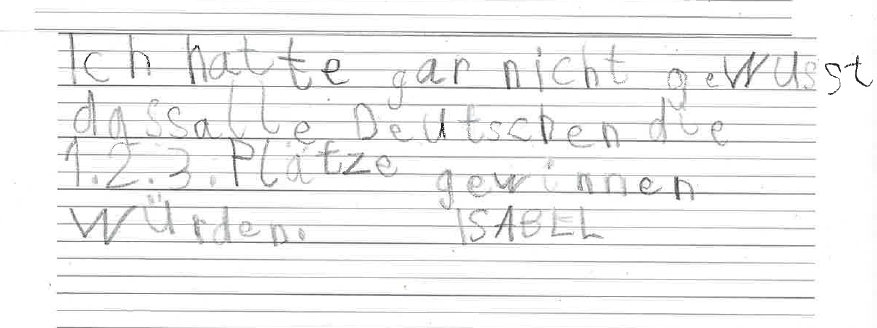 Ich hatte gar nicht gewusst
dassalle Deutschen die
1.2.3. Plätze gewinnen
würden. ISABEL